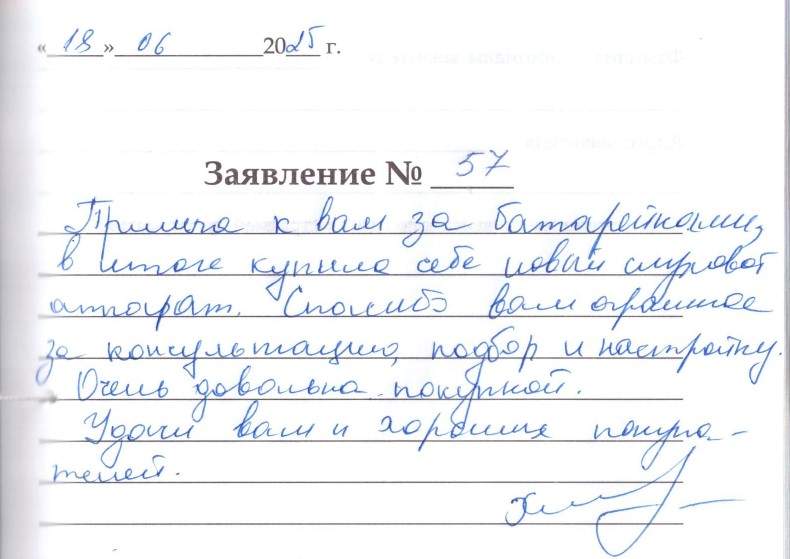 «18» 06 2025 г.
Заявление № 57
Пришла к вам за батарейками,
в итоге купила себе новый слуховой
аппарат. Спасибо вам огромное
за консультацию, подбор и настройку.
Очень довольна покупкой.
Удачи вам и хороших покупа-
телей.